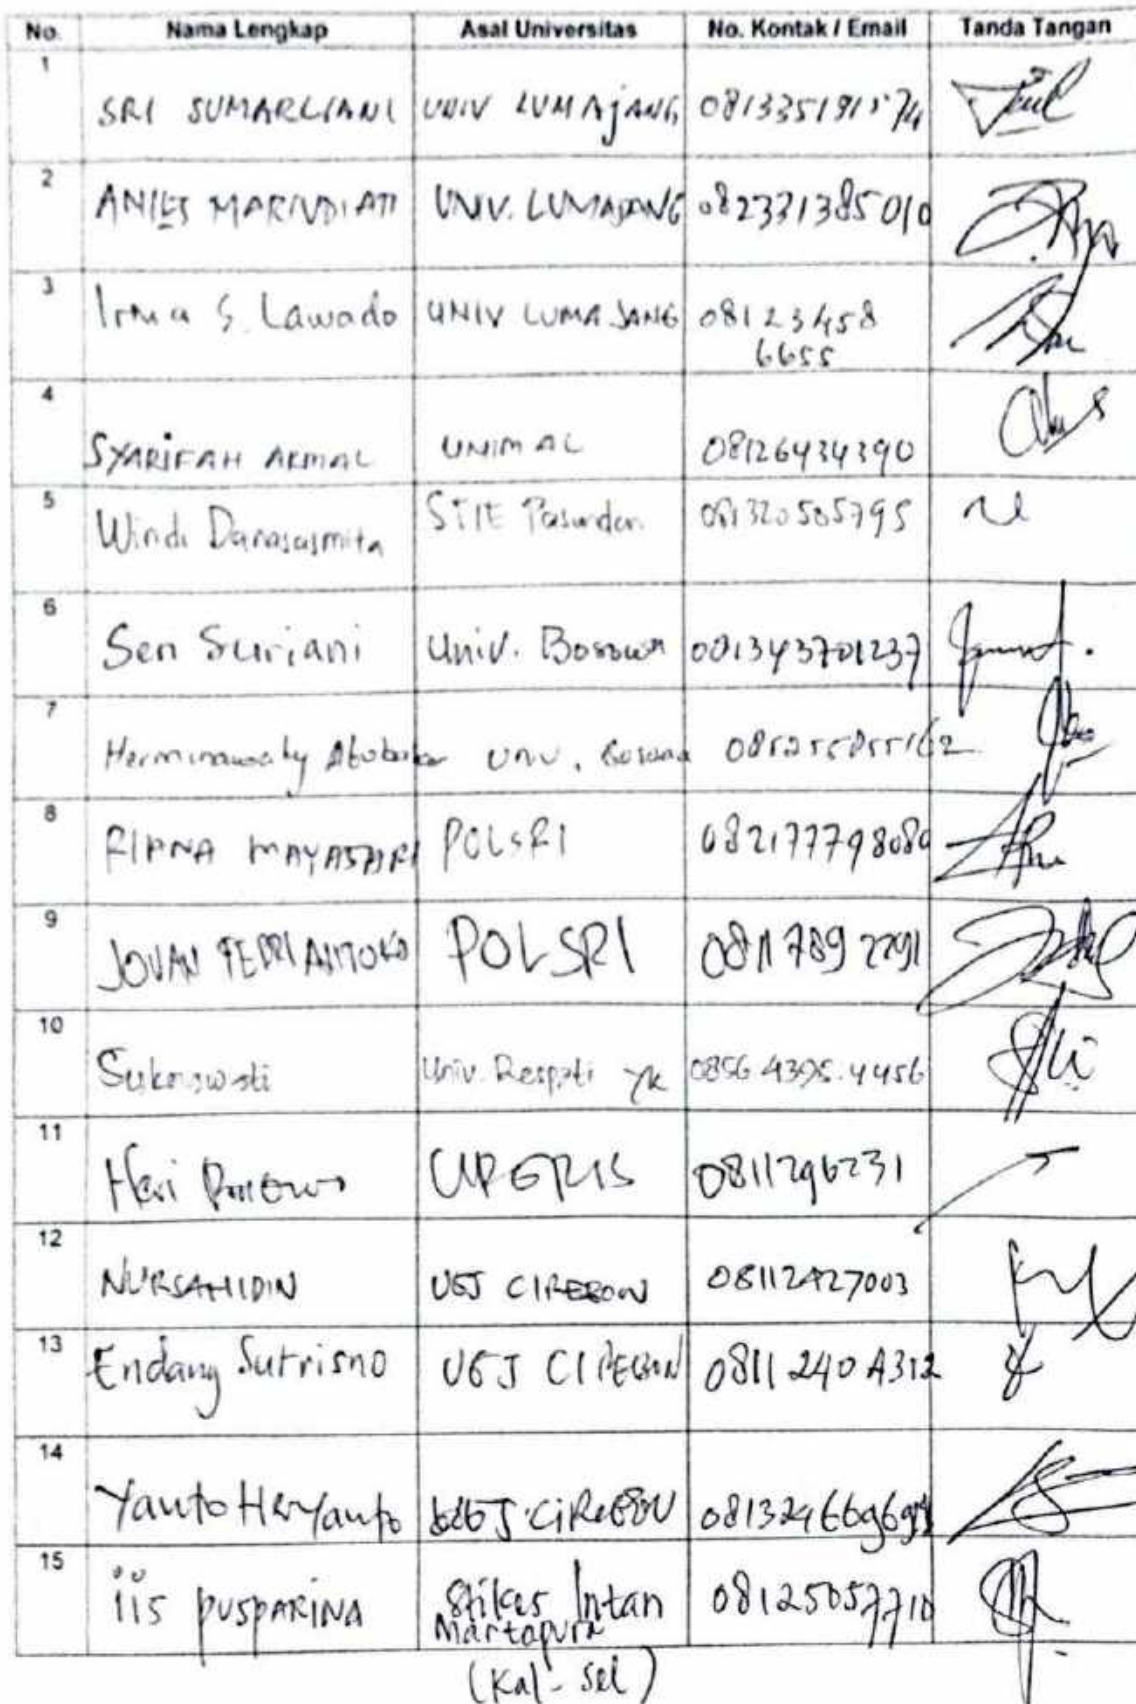 No. Nama Lengkap Asal Universitas No. Kontak / Email Tanda Tangan
1 SRI SUMARLIANI UNIV LUMAJANG
2 UNIV. LUMAJANG 082331385010
3 Irma S. Lawado UNIV LUMAJANG 08123458
6655
4 SYARIFAH AKMAL UNIMAL 08126434390
5 Windi Danasasmita STIE Pasundan 081320505795
6 Seri Suriani Univ. Bosowa 081343701237
7 Herminawaty Abubakar Univ. Bosowa
8 MAYASARI POLSRI 082177798080
9 JOVAN FEBRIANTOKO POLSRI 0811 789 2291
10 Sukmawati Univ. Respati Yk 0856.4395.4456
11 Heri UPGRIS 0811296231
12 NURSAHIDIN UGJ CIREBON 08112427003
13 Endang Sutrisno UGJ CIREBON 0811 240 4312
14 Yanto Heryanto UGJ CIREBON
15 iis PUSPARINA Stikes Intan 08125057710
Martapura
(Kal-Sel)